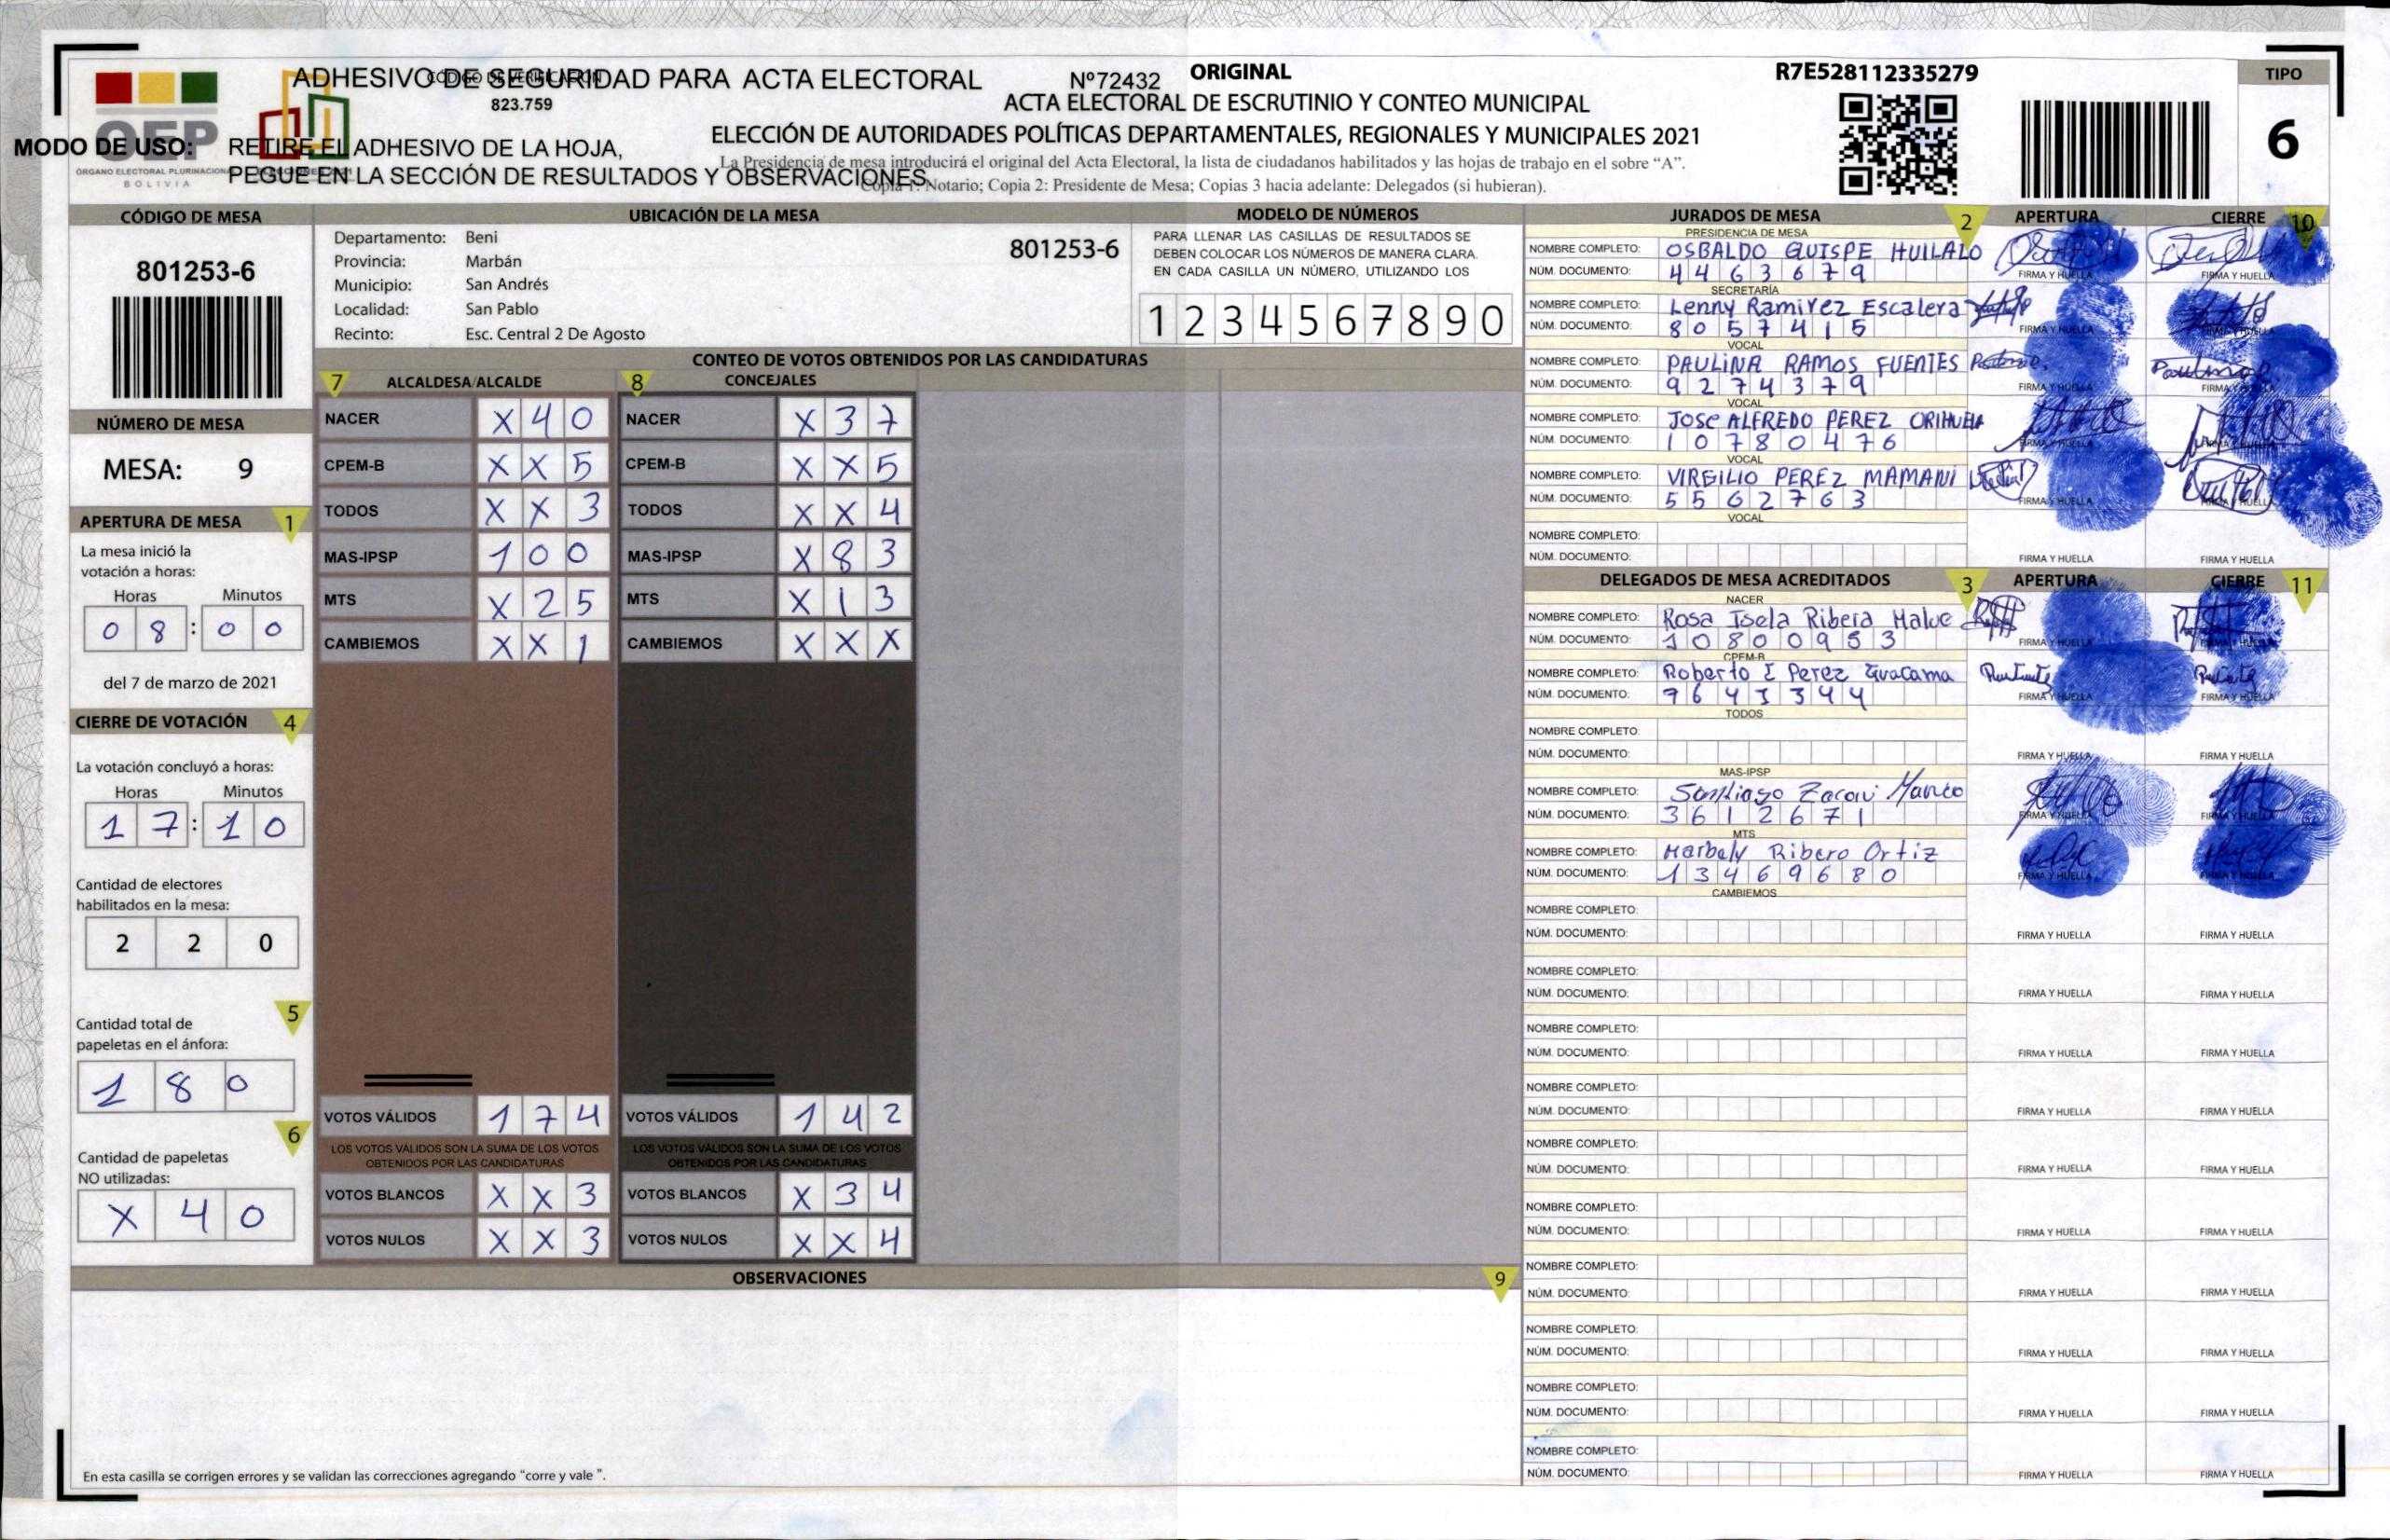 ADHESIVO DE SEGURIDAD PARA ACTA ELECTORAL Nº72432
CÓDIGO DE VERIFICACIÓN
823.759
ORIGINAL
R7E528112335279
TIPO
6
ACTA ELECTORAL DE ESCRUTINIO Y CONTEO MUNICIPAL
ELECCIÓN DE AUTORIDADES POLÍTICAS DEPARTAMENTALES, REGIONALES Y MUNICIPALES 2021
OEP
ÓRGANO ELECTORAL PLURINACIONAL
BOLIVIA
MODO DE USO: RETIRE EL ADHESIVO DE LA HOJA,
PEGUE EN LA SECCIÓN DE RESULTADOS Y OBSERVACIONES
La Presidencia de mesa introducirá el original del Acta Electoral, la lista de ciudadanos habilitados y las hojas de trabajo en el sobre “A”.
Copia 1: Notario; Copia 2: Presidente de Mesa; Copias 3 hacia adelante: Delegados (si hubieran).
CÓDIGO DE MESA
801253-6
NÚMERO DE MESA
MESA: 9
APERTURA DE MESA 1
La mesa inició la
votación a horas:
Horas Minutos
0 8 : 0 0
del 7 de marzo de 2021
CIERRE DE VOTACIÓN 4
La votación concluyó a horas:
Horas Minutos
1 7 : 1 0
Cantidad de electores
habilitados en la mesa:
2 2 0
5
Cantidad total de
papeletas en el ánfora:
1 8 0
6
Cantidad de papeletas
NO utilizadas:
X 4 0
UBICACIÓN DE LA MESA
Departamento: Beni
Provincia: Marbán
Municipio: San Andrés
Localidad: San Pablo
Recinto: Esc. Central 2 De Agosto
801253-6
MODELO DE NÚMEROS
PARA LLENAR LAS CASILLAS DE RESULTADOS SE
DEBEN COLOCAR LOS NÚMEROS DE MANERA CLARA.
EN CADA CASILLA UN NÚMERO, UTILIZANDO LOS
1 2 3 4 5 6 7 8 9 0
CONTEO DE VOTOS OBTENIDOS POR LAS CANDIDATURAS
7 ALCALDESA/ALCALDE
NACER X 4 0
CPEM-B X X 5
TODOS X X 3
MAS-IPSP 1 0 0
MTS X 2 5
CAMBIEMOS X X 1
VOTOS VÁLIDOS 1 7 4
LOS VOTOS VÁLIDOS SON LA SUMA DE LOS VOTOS
OBTENIDOS POR LAS CANDIDATURAS
VOTOS BLANCOS X X 3
VOTOS NULOS X X 3
8 CONCEJALES
NACER X 3 7
CPEM-B X X 5
TODOS X X 4
MAS-IPSP X 8 3
MTS X 1 3
CAMBIEMOS X X X
VOTOS VÁLIDOS 1 4 2
LOS VOTOS VÁLIDOS SON LA SUMA DE LOS VOTOS
OBTENIDOS POR LAS CANDIDATURAS
VOTOS BLANCOS X 3 4
VOTOS NULOS X X 4
OBSERVACIONES 9
En esta casilla se corrigen errores y se validan las correcciones agregando “corre y vale ”.
JURADOS DE MESA 2 APERTURA CIERRE 10
PRESIDENCIA DE MESA
NOMBRE COMPLETO: OSBALDO QUISPE HUILALO
NÚM. DOCUMENTO: 4 4 6 3 6 7 9 FIRMA Y HUELLA FIRMA Y HUELLA
SECRETARÍA
NOMBRE COMPLETO: Lenny Ramirez Escalera
NÚM. DOCUMENTO: 8 0 5 7 4 1 5 FIRMA Y HUELLA FIRMA Y HUELLA
VOCAL
NOMBRE COMPLETO: PAULINA RAMOS FUENTES
NÚM. DOCUMENTO: 9 2 7 4 3 7 9 FIRMA Y HUELLA Paulina FIRMA Y HUELLA
VOCAL
NOMBRE COMPLETO: JOSE ALFREDO PEREZ ORIHUELA
NÚM. DOCUMENTO: 1 0 7 8 0 4 7 6 FIRMA Y HUELLA FIRMA Y HUELLA
VOCAL
NOMBRE COMPLETO: VIRGILIO PEREZ MAMANI
NÚM. DOCUMENTO: 5 5 6 2 7 6 3 FIRMA Y HUELLA FIRMA Y HUELLA
VOCAL
NOMBRE COMPLETO:
NÚM. DOCUMENTO: FIRMA Y HUELLA FIRMA Y HUELLA
DELEGADOS DE MESA ACREDITADOS 3 APERTURA CIERRE 11
NACER
NOMBRE COMPLETO: Rosa Isela Ribera Maluc
NÚM. DOCUMENTO: 1 0 8 0 0 9 5 3 FIRMA Y HUELLA FIRMA Y HUELLA
CPEM-B
NOMBRE COMPLETO: Roberto E Perez Guacama
NÚM. DOCUMENTO: 9 6 4 3 3 4 4 FIRMA Y HUELLA FIRMA Y HUELLA
TODOS
NOMBRE COMPLETO:
NÚM. DOCUMENTO: FIRMA Y HUELLA FIRMA Y HUELLA
MAS-IPSP
NOMBRE COMPLETO: Santiago Zacari Marco
NÚM. DOCUMENTO: 3 6 1 2 6 7 1 FIRMA Y HUELLA FIRMA Y HUELLA
MTS
NOMBRE COMPLETO: Marbely Ribero Ortiz
NÚM. DOCUMENTO: 1 3 4 6 9 6 8 0 FIRMA Y HUELLA FIRMA Y HUELLA
CAMBIEMOS
NOMBRE COMPLETO:
NÚM. DOCUMENTO: FIRMA Y HUELLA FIRMA Y HUELLA
NOMBRE COMPLETO:
NÚM. DOCUMENTO: FIRMA Y HUELLA FIRMA Y HUELLA
NOMBRE COMPLETO:
NÚM. DOCUMENTO: FIRMA Y HUELLA FIRMA Y HUELLA
NOMBRE COMPLETO:
NÚM. DOCUMENTO: FIRMA Y HUELLA FIRMA Y HUELLA
NOMBRE COMPLETO:
NÚM. DOCUMENTO: FIRMA Y HUELLA FIRMA Y HUELLA
NOMBRE COMPLETO:
NÚM. DOCUMENTO: FIRMA Y HUELLA FIRMA Y HUELLA
NOMBRE COMPLETO:
NÚM. DOCUMENTO: FIRMA Y HUELLA FIRMA Y HUELLA
NOMBRE COMPLETO:
NÚM. DOCUMENTO: FIRMA Y HUELLA FIRMA Y HUELLA
NOMBRE COMPLETO:
NÚM. DOCUMENTO: FIRMA Y HUELLA FIRMA Y HUELLA
NOMBRE COMPLETO:
NÚM. DOCUMENTO: FIRMA Y HUELLA FIRMA Y HUELLA